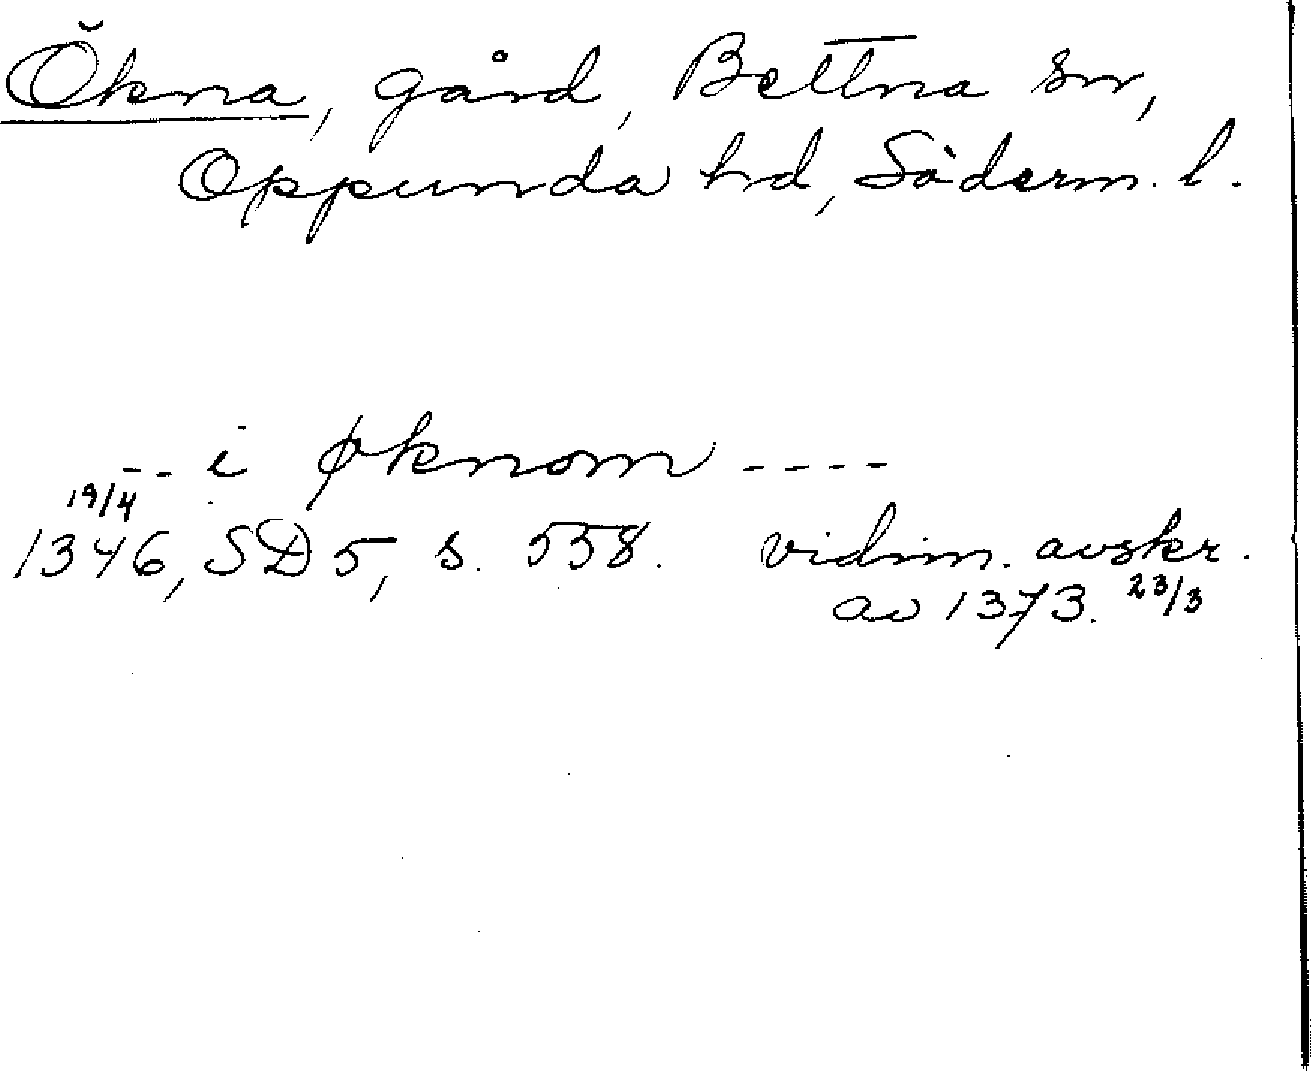 Ökna, gård, Bettna sn,
Oppunda hd, Söderm. l.
-- i øknom ----
19/4
1346, SD 5, s. 558. vidim. avskr.
av 1373. 23/3